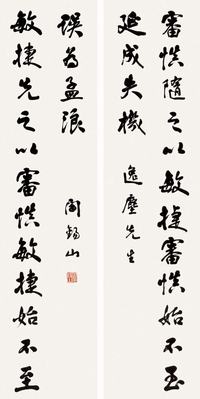 審慎隨之以敏捷審慎始不至
延成失機
逸塵先生
敏捷先之以審慎敏捷始不至
誤為孟浪
閻錫山